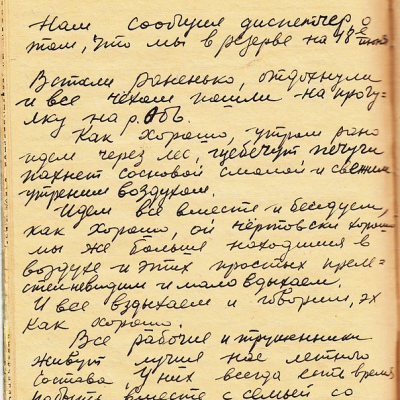 Нам сообщил диспетчер о
том, что мы в резерве на 18
Встали раненько, отдохнули
и все чехом пошли на прогу-
лку на р. Обь.
Как хорошо, утром рано
идем через лес, щебечут
пахнет сосновой смолой и свежим
утренним воздухом.
Идем все вместе и беседуем,
как хорошо, ой чертовски хорошо
мы же больше находимся в
воздухе и этих простых преле-
стей невидим и мало вдыхаем.
И все вздыхаем и говорим, эх
как хорошо.
Все рабочие и труженники
живут лучше нас летного
состава, У них всегда есть время
побыть вместе с семьей со